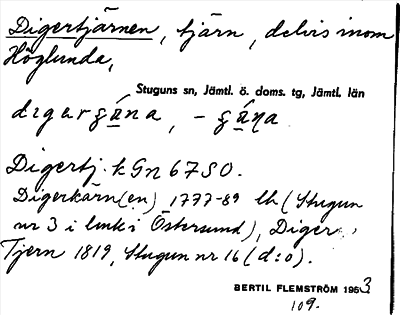 Digertjärnen, tjärn, delvis inom
Höglunda,
Stuguns sn, Jämtl. ö. doms. tg, Jämtl. län
Digertj. k Gn 67SO.
Digerkärn(en) 1777-89 lh (Stugun
nr 3 i link i Östersund), Diger
Tjern 1819, Stugun nr 16 (d:o).
BERTIL FLEMSTRÖM 1953
109.